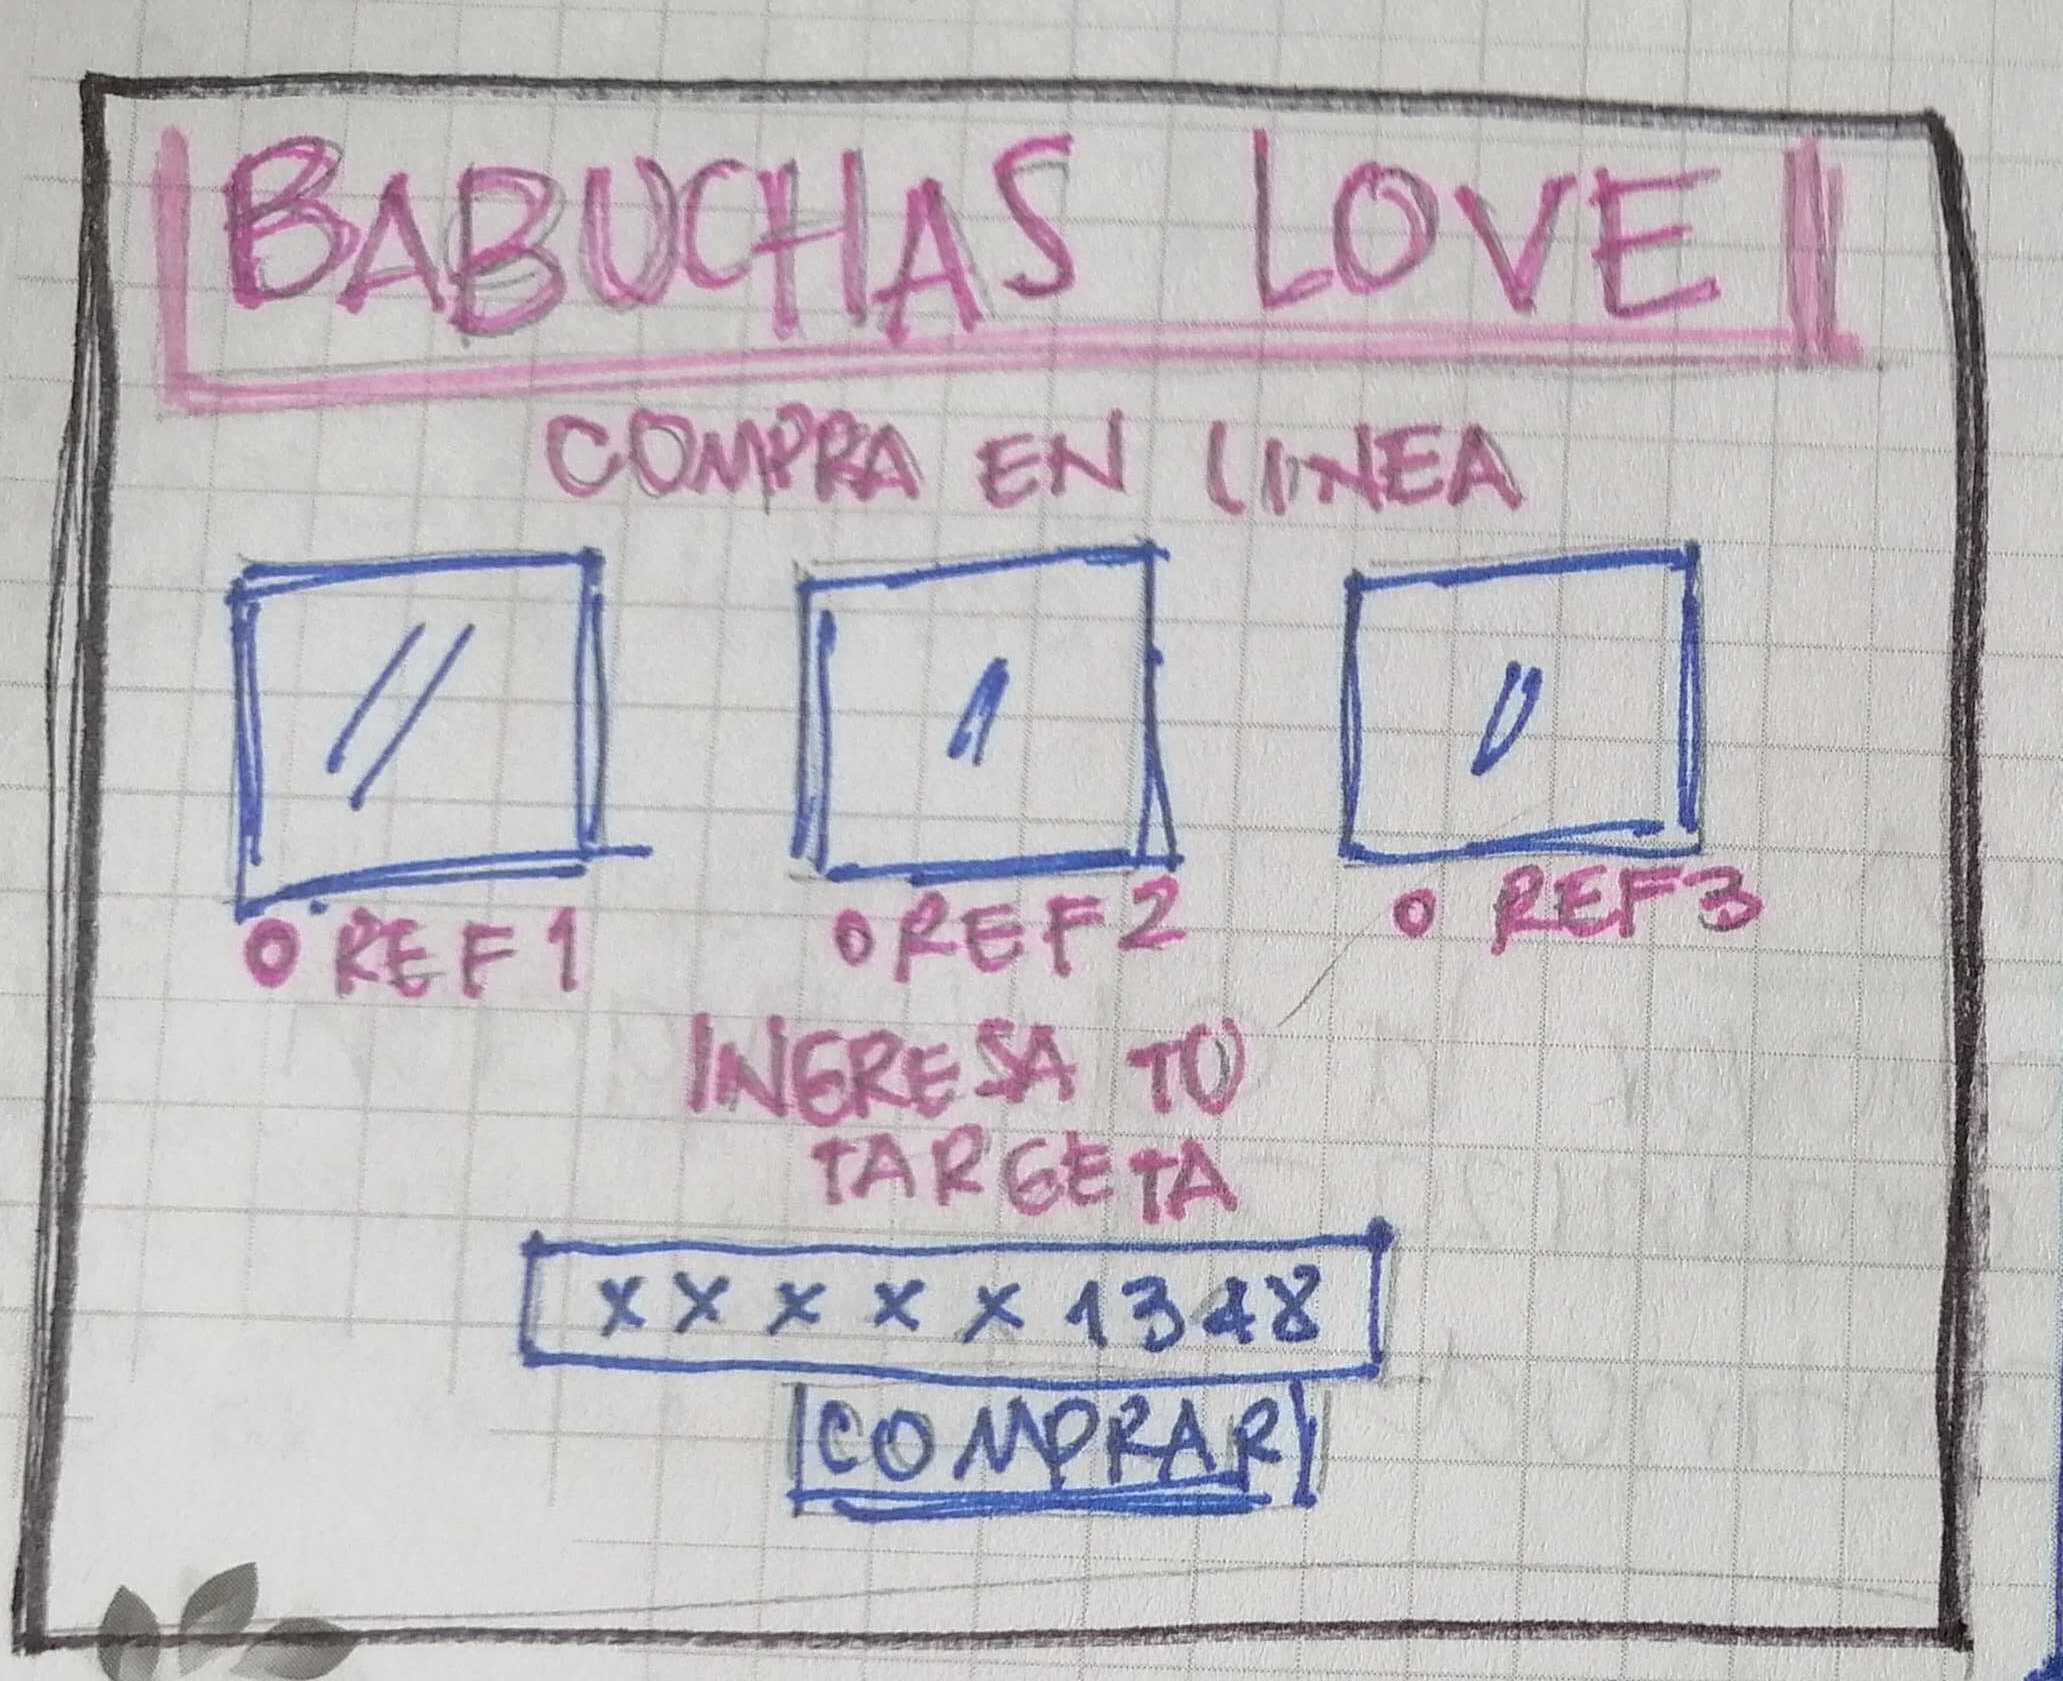 BABUCHAS LOVE
COMPRA EN LINEA
O REF 1 O REF 2 O REF 3
INGRESA TU
TARGETA
X X X X X 1348
COMPRAR